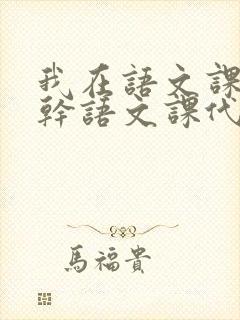 我在語文課
幹語文課代
馬福貴